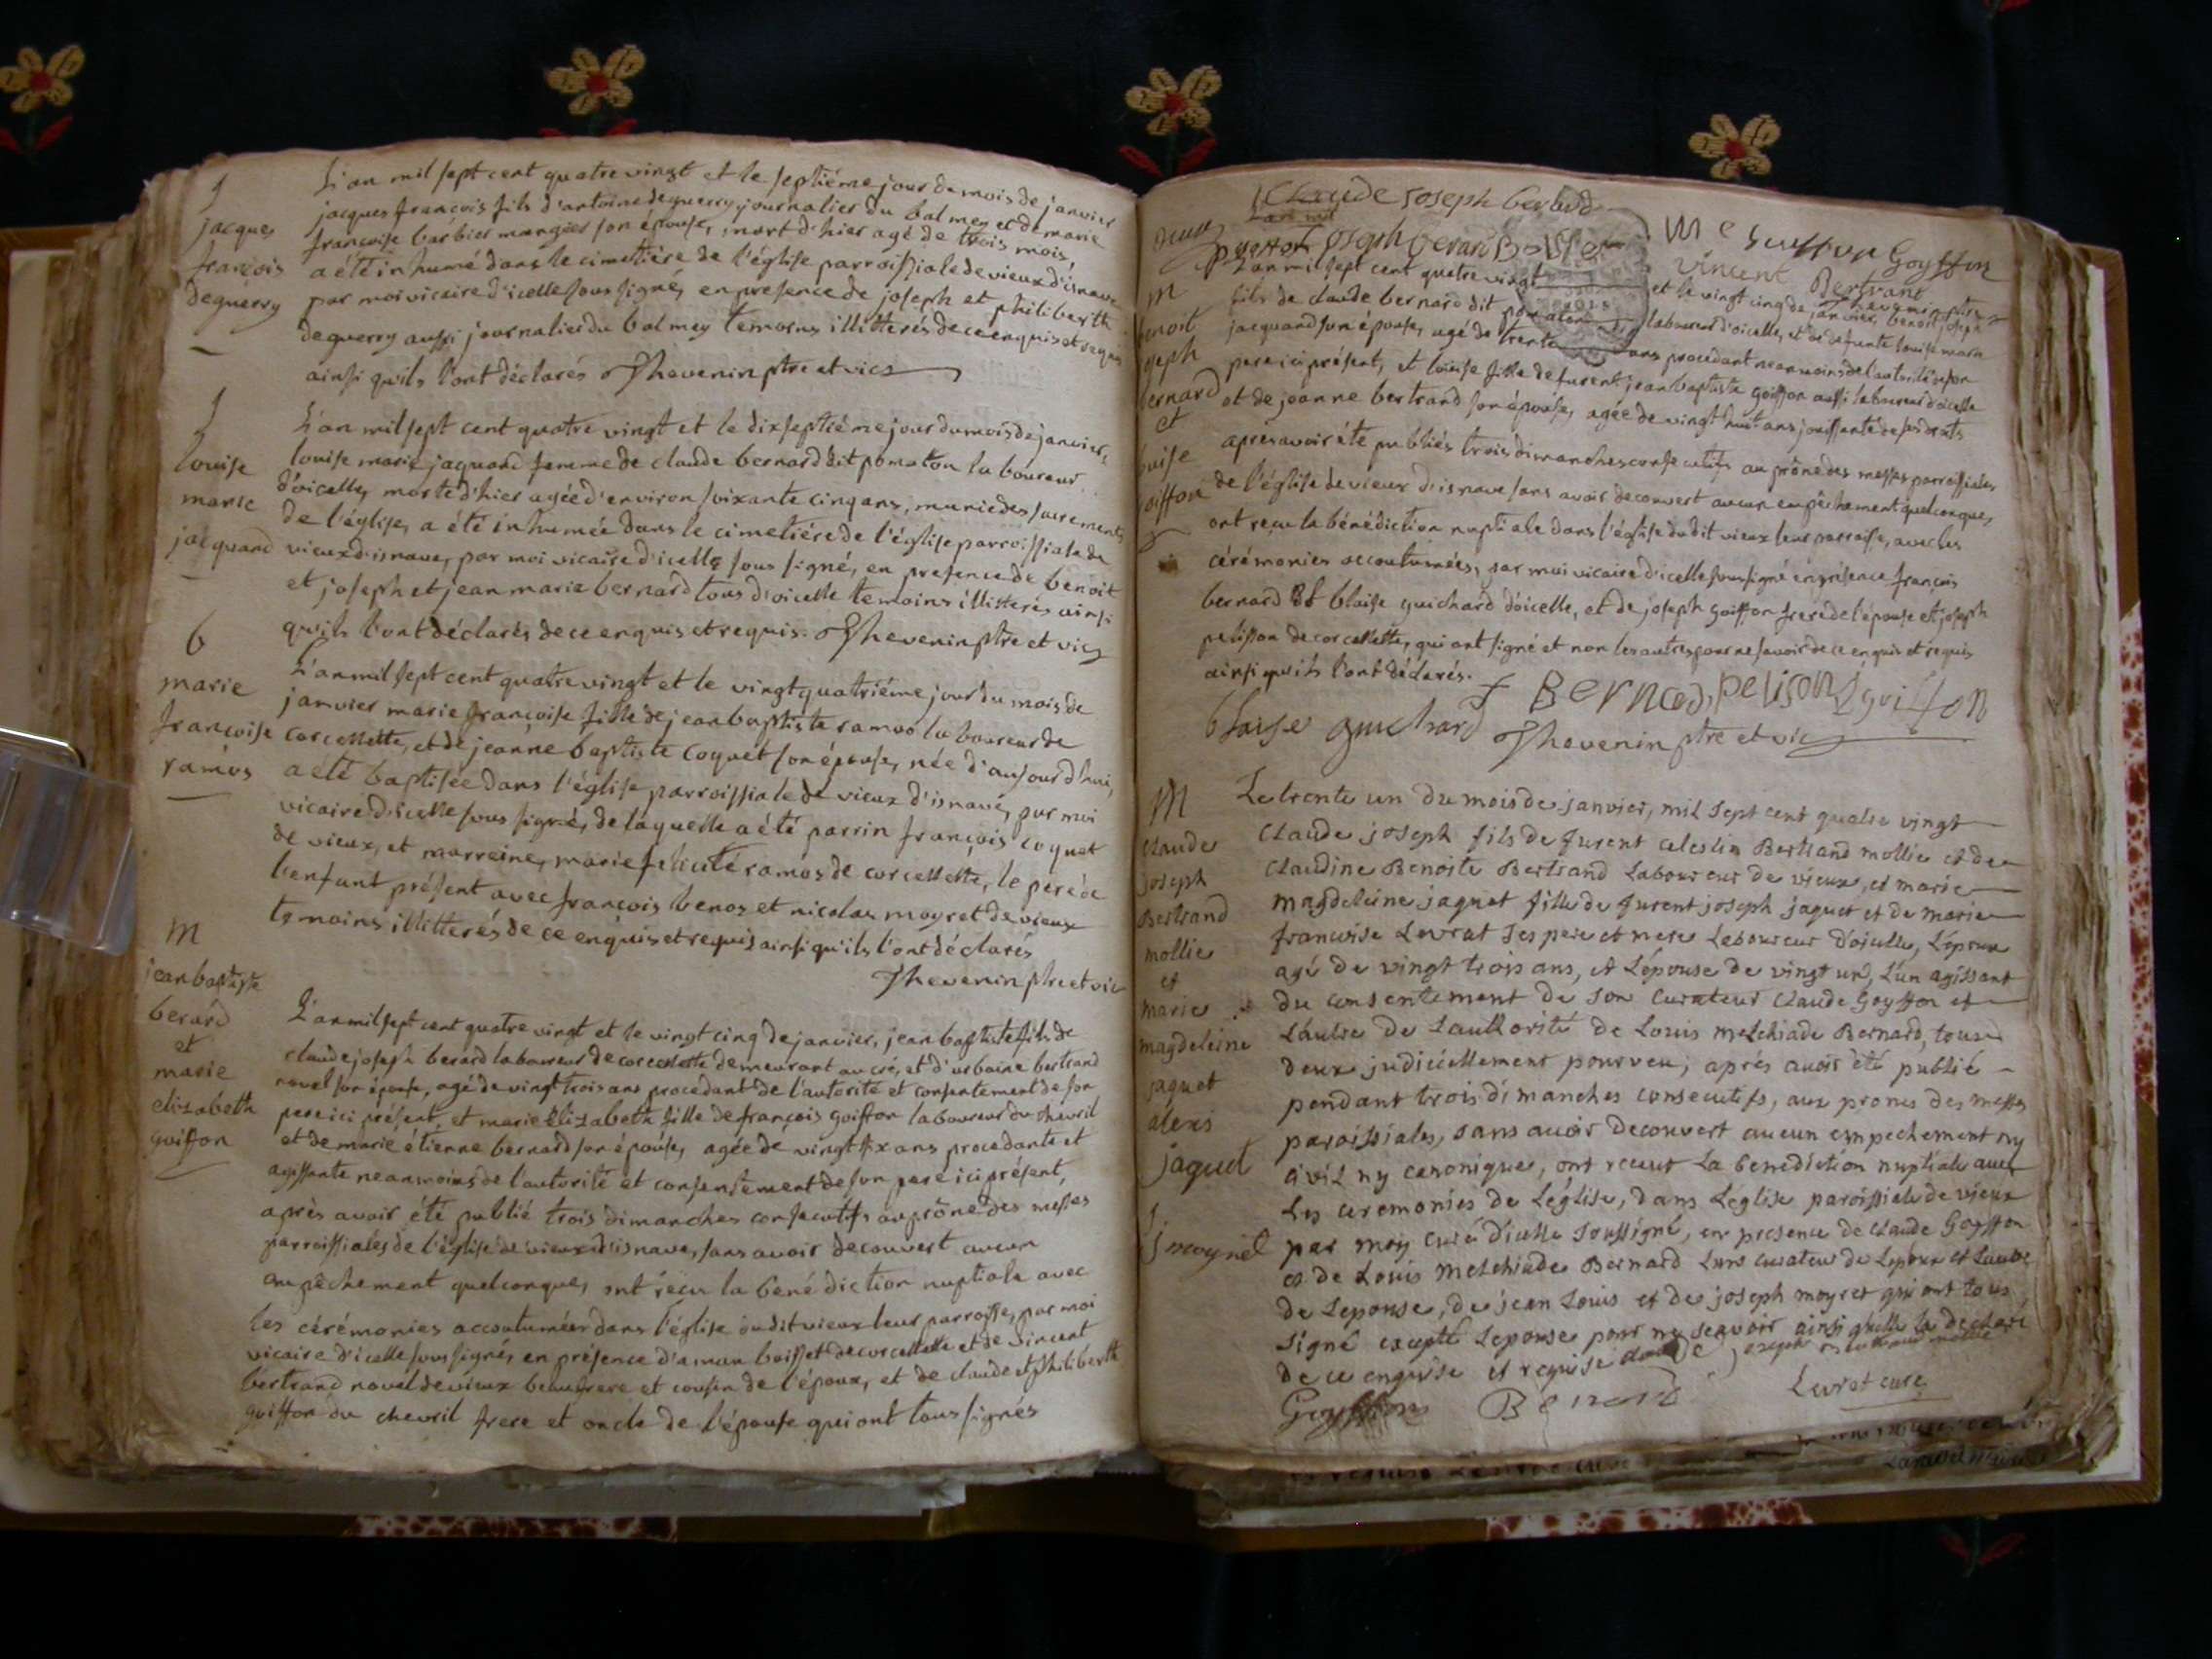 L'an mil sept cent quatre vingt et le septiéme jour du mois de janvier
1
jacques françois fils d'antoine deguerry journalier du balmey et de marie
jacques
françoise barbier mangier son épouse, mort d'hier agé de trois mois,
françois
a été inhumé dans le cimetiére de l'église parroissiale de vieux d'isnave
deguerry
par moi vicaire d'icelle sous signé, en presence de joseph et philiberth
deguerry aussi journalier du balmey temoins illitterés de ce enquis et requis
ainsi qu'ils l'ont déclarés Thevenin ptre et vic
1
L'an mil sept cent quatre vingt et le dix septiéme jour du mois de janvier,
louise
louise marie jaquand femme de claude bernard dit pomaton laboureur
marie
d'oicelle, morte d'hier agée d'environ soixante cinq ans, munie des sacrements
jacquand
de l'église, a été inhumée dans le cimetiére de l'église parroissiale de
vieux d'isnave, par moi vicaire d'icelle sous signé, en presence de benoit
et joseph et jean marie bernard tous d'oicelle temoins illitterés ainsi
qu'ils l'ont déclarés de ce enquis et requis. Thevenin ptre et vic
b
L'an mil sept cent quatre vingt et le vingt quatriéme jour du mois de
marie
janvier marie françoise fille de jean baptiste ramos laboureur de
françoise
corcellette, et de jeanne baptiste coquet son épouse, née d'aujourd'hui,
ramos
a été baptisée dans l'église parroissiale de vieux d'isnave, par moi
vicaire d'icelle sous signé, de laquelle a été parrin françois coquet
de vieux, et marreine, marie felicité ramos de corcellette, le pere de
l'enfant présent avec françois benoz et nicolas moyret de vieux
temoins illitterés de ce enquis et requis ainsi qu'ils l'ont déclarés
Thevenin ptre et vic
M
jean baptiste
berard
et
marie
elizabeth
goiffon
L'an mil sept cent quatre vingt et le vingt cinq de janvier, jean baptiste fils de
claude joseph berard laboureur de corcellette demeurant au cré, et d'urbaine bertrand
novel son épouse, agé de vingt trois ans procédant de l'autorité et consentement de son
pere ici présent, et marie elizabeth fille de françois goiffon laboureur du chevril
et de marie étienne bernard son épouse, agée de vingt six ans procedante et
agissante neanmoins de l'autorité et consentement de son pere ici présent,
après avoir été publié trois dimanches consecutifs au prône des messes
parroissiales de l'église de vieux d'isnave, sans avoir decouvert aucun
empêchement quelconque, ont reçu la bénédiction nuptiale avec
les cérémonies accoutumées dans l'église dudit vieux leur parroisse, par moi
vicaire d'icelle sous signé, en présence d'aman boisset de corcellette et de vincent
bertrand novel de vieux beaufrere et cousin de l'époux, et de claude et philiberth
goiffon du chevril frere et oncle de l'épouse qui ont tous signés
Claude Joseph berard
L'an mil
goyffon Joseph berard Boisset
Goyffon
vincent Bertrant
Thevenin ptre
M
benoit
joseph
bernard
et
louise
goiffon
L'an mil sept cent quatre vingt et le vingt cinq de janvier, benoit joseph
fils de claude bernard dit pomaton laboureur d'oicelle, et de defunte louise marie
jacquand son épouse, agé de trente ans procedant neanmoins de l'autorité de son
pere ici présent, et louise fille de furent jean baptiste goiffon aussi laboureur d'oicelle
et de jeanne bertrand son épouse, agée de vingt huit ans jouissante de ses droits
apres avoir été publiés trois dimanches consecutifs au prône des messes parroissiales
de l'église de vieux d'isnave sans avoir decouvert aucun empêchement quelconque,
ont reçu la bénédiction nuptiale dans l'église dudit vieux leur parroisse, avec les
cérémonies accoutumées, par moi vicaire d'icelle sous signé en présence françois
bernard et blaise guichard d'oicelle, et de joseph goiffon frere de l'épouse et joseph
pelisson de corcellette, qui ont signé et non les autres pour ne savoir de ce enquis et requis
ainsi qu'ils l'ont déclarés.
f Bernard pelison goiffon
blaise guichard Thevenin ptre et vic
M
claude
joseph
Bertrand
mollie
et
marie
magdeleine
jaquet
alexis
jaquet
Le trente un du mois de janvier, mil sept cent quatre vingt
Claude joseph fils de furent celestin Bertrand mollie et de
Claudine Benoite Bertrand Laboureur de vieux, et marie
magdeleine jaquet fille de furent joseph jaquet et de marie
francoise Levrat ses pere et mere Laboureur d'oicelle, L'epoux
agé de vingt trois ans, et L'épouse de vingt un, L'un agissant
du consentement de son Curateur Claude Goyffon et
L'autre de L'authorité de Louis Melchiade Bernard, tous
deux judiciellement pourveu; aprés avoir été publié
pendant trois dimanches consecutifs, aux prones des messes
paroissiales, sans avoir decouvert aucun empechement ny
civil ny canonique, ont receut La benediction nuptiale avec
Les ceremonies de L'église, dans L'église paroissiale de vieux
par moy curé d'icelle soussigné, en presence de Claude Goyffon
et de Louis Melchiade Bernard L'uns curateur de L'epoux et L'autre
de L'epouse, de jean Louis et de joseph moyret qui ont tous
signé excepté L'epouse pour ne scavoir ainsi qu'elle la declaré
de ce enquise et requise claude joseph bertrand mollie
Goyffon Benard Levrat curé